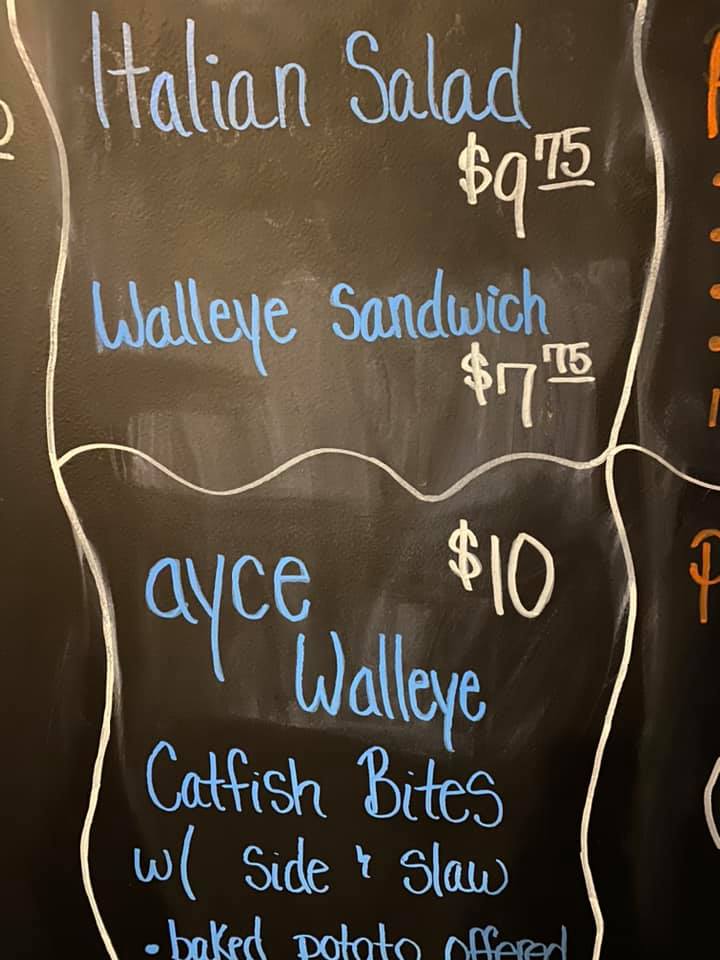 Italian Salad
$9 75
Walleye Sandwich
$7 75
ayce $10
Walleye
Catfish Bites
w/ side & slaw
• baked potato offered